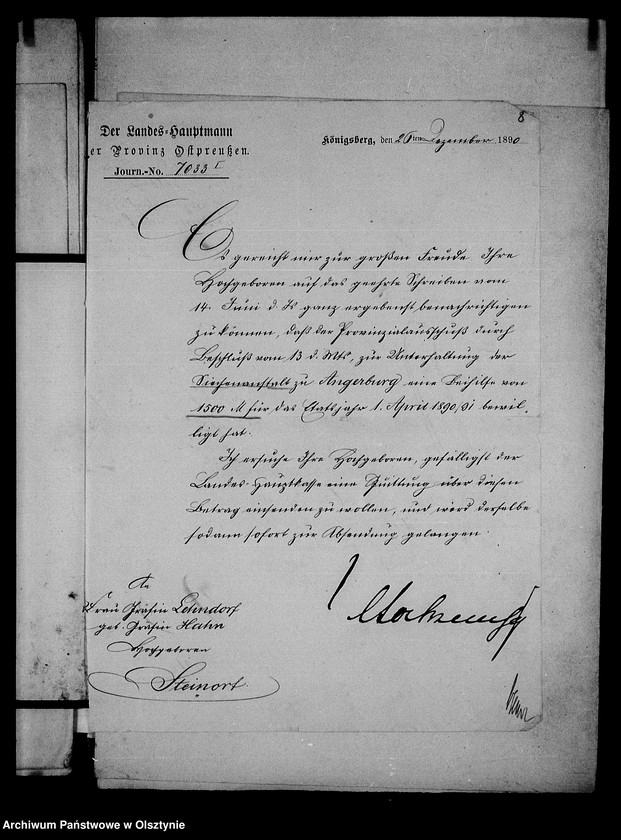 8
Der Landes-Hauptmann
er Provinz Ostpreußen.
Journ.-No. 7033 I
Königsberg, den 26ten Dezember 1890
Es gereicht mir zur großen Freude Ihre
Hochgeboren auf das geehrte Schreiben vom
14. Juni d. Js ganz ergebenst benachrichtigen
zu können, daß der Provinzialausschuß durch
Beschluß vom 13 d. Mts, zur Unterhaltung der
Siechenanstalt zu Angerburg eine Beihilfe von
1500 M für das Etatsjahr 1. April 1890/91 bewil-
ligt hat.
Ich ersuche Ihre Hochgeboren, gefälligst der
Landes-Hauptkasse eine Quittung über diesen
Betrag einsenden zu wollen, und wird derselbe
sodann sofort zur Absendung gelangen.
An
Frau Gräfin Lehndorf
geb. Gräfin Hahn
Hochgeboren
Steinort.
Archiwum Państwowe w Olsztynie